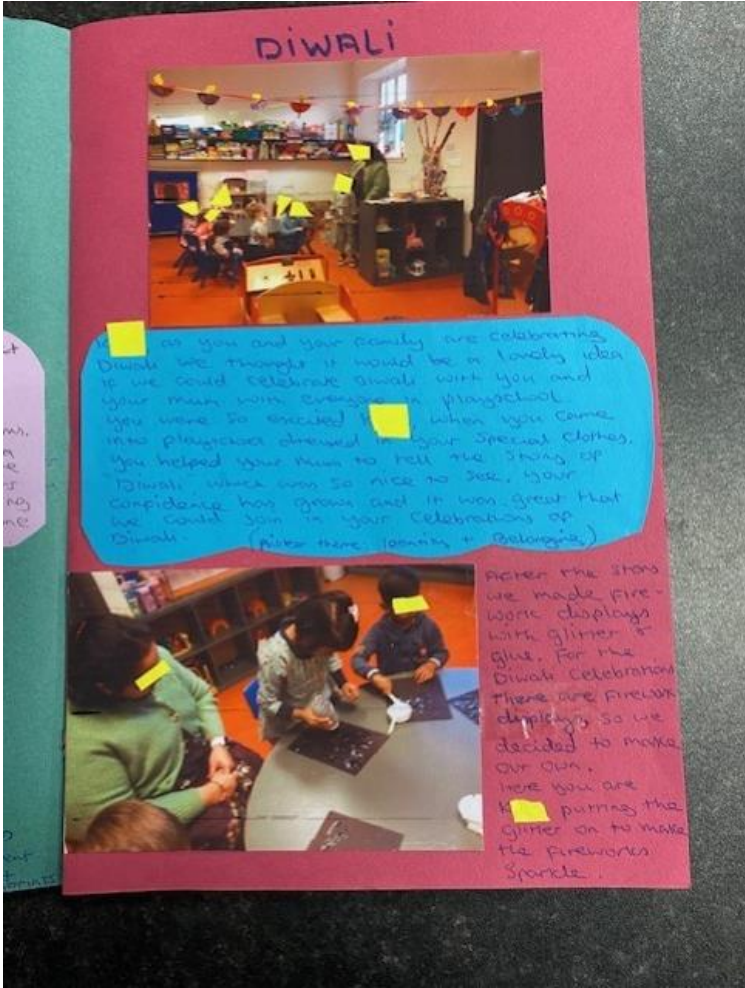 DIWALI
as you and your family are celebrating
Diwali we thought it would be a lovely idea
if we could celebrate Diwali with you and
your mum with everyone in playschool.
You were so excited when you came
into playschool dressed in your special clothes.
You helped your mum to tell the story of
"Diwali" which was so nice to see. Your
confidence has grown and it was great that
we could join in your celebrations of
Diwali. (Aistear theme, Identity & Belonging)
After the story
we made fire-
work displays
with glitter &
glue. For the
Diwali Celebrations
there are firework
displays, so we
decided to make
our own.
Here you are
K putting the
glitter on to make
the fireworks
Sparkle.